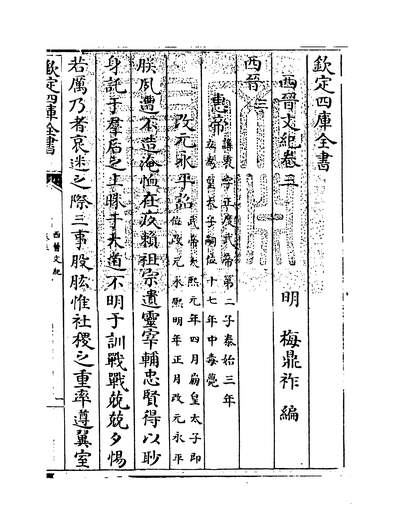 欽定四庫全書
西晉文紀卷三
明 梅鼎祚 編
西晉三
惠帝
諱衷字正度武帝第二子泰始三年
立為皇太子嗣位十七年中毒薨
改元永平詔
武帝太熙元年四月崩皇太子即
位改元永熙明年正月改元永平
朕夙遭不造淹恤在疚賴祖宗遺靈宰輔忠賢得以眇
身託于羣后之上昧于大道不明于訓戰戰兢兢夕惕
若厲乃者哀迷之際三事股肱惟社稷之重率遵翼室
欽定四庫全書
西晉文紀